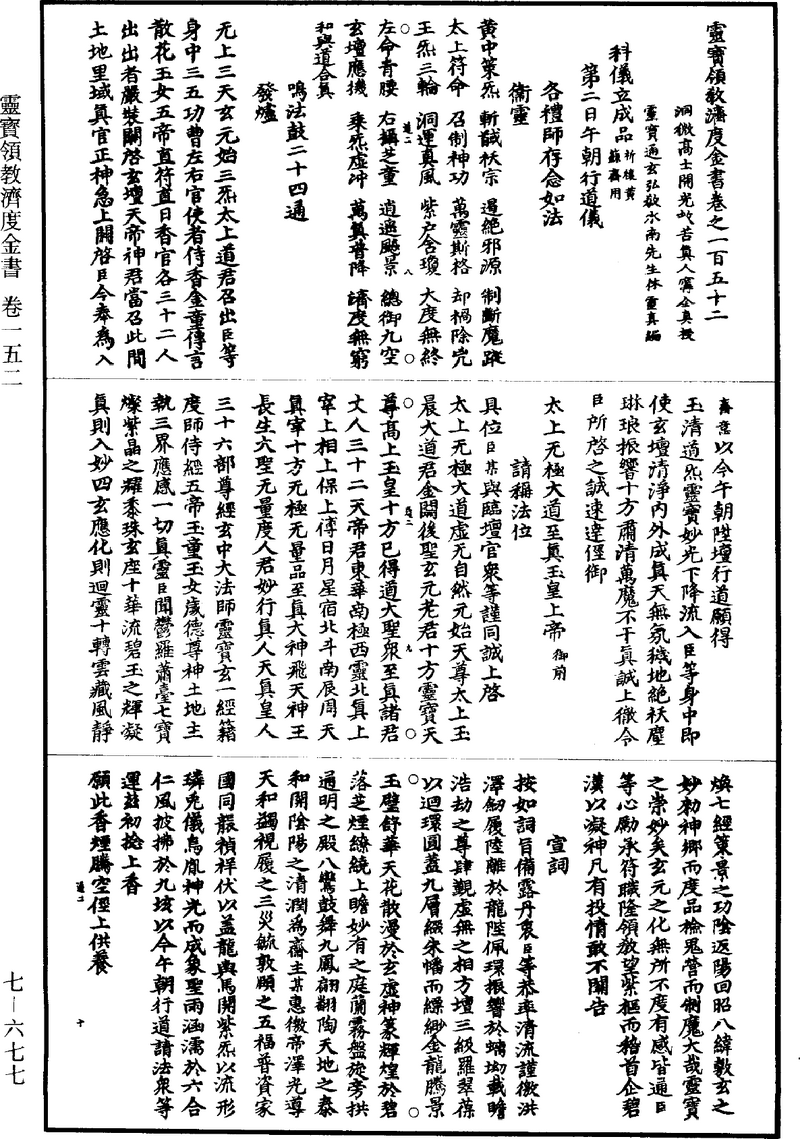 靈寶領教濟度金書卷之一百五十二
洞微高士開光救苦真人寧全真授
靈寶通玄弘教水南先生林靈真編
科儀立成品 祈禳黄籙齋用
第二日午朝行道儀
各禮師存念如法
衛靈
黄中策炁 斬馘祅宗 遏絶邪源 制斷魔蹤
太上符命 召制神功 萬靈斯格 却禍除兇
王炁三輪 洞運真風 紫户含瓊 大度無終
左命青腰 右攝芝童 逍遥飈景 總御九空
玄壇應機 乘炁虚冲 萬真普降 濟度無窮
和與道合真
鳴法鼓二十四通
發爐
无上三天玄元始三炁太上道君召出臣等
身中三五功曹左右官使者侍香金童傳言
散花玉女五帝直符直日香官各三十二人
出出者嚴裝關啓玄壇天帝神君當召此間
土地里域真官正神急上關啓臣今奉爲入
齋意以今午朝陞壇行道願得
玉清道炁靈寶妙光下降流入臣等身中即
使玄壇清淨内外成真天無氛穢地絶祅塵
琳琅振響十方肅清萬魔不干真誠上徹令
臣所啓之誠速達徑御
太上无極大道至真玉皇上帝 御前
請稱法位
具位臣某與臨壇官衆等謹同誠上啓
太上无極大道虚无自然元始天尊太上玉
晨大道君金闕後聖玄元老君十方靈寶天
尊高上玉皇十方已得道大聖衆至真諸君
丈人三十二天帝君東華南極西靈北真上
宰上相上保上傅日月星宿北斗南辰周天
真宰十方无極无量品至真大神飛天神王
長生大聖无量度人君妙行真人天真皇人
三十六部尊經玄中大法師靈寶玄一經籍
度師侍經五帝玉童玉女歲德尊神土地主
執三界應感一切真靈臣聞鬱羅蕭臺七寶
燦紫晶之耀黍珠玄座十華流碧玉之輝凝
真則入妙四玄應化則迴靈十轉雲藏風靜
煥七經策景之功陰返陽回昭八緯敷玄之
妙勑神鄉而度品檢鬼營而制魔大哉靈寶
之崇妙矣玄元之化無所不度有感皆通臣
等心勵承符職隆領教望紫樞而稽首企碧
漢以凝神凡有投情敢不關告
宣詞
按如詞旨備露丹衷臣等恭率清流謹徹洪
澤劒履陸離於龍陛佩環振響於螭坳載瞻
浩劫之尊肆觀虚無之相方壇三級羅翠葆
以迴環圓蓋九層綴朱幡而縹緲金龍騰景
玉璧舒華天花散漫於玄虚神篆輝煌於碧
落芝煙繚繞上瞻妙有之庭蘭霧盤旋旁拱
通明之殿八鸞鼓舞九鳳翩翻陶天地之泰
和開陰陽之清潤爲齋主某惠徹帝澤光導
天和蠲視履之三災毓敦頤之五福普資家
國同嚴禎祥伏以益龍與馬開紫炁以流形
璘兔儀烏胤神光而成象聖雨涵濡於六合
仁風披拂於九垓以今午朝行道請法衆等
運玆初捻上香
願此香煙騰空徑上供養
道二
八
道二
九
道二
十
靈寶領教濟度金書 卷一五二
七—六七七